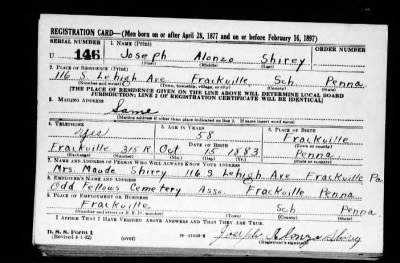 REGISTRATION CARD—(Men born on or after April 28, 1877 and on or before February 16, 1897)
SERIAL NUMBER 1. NAME (Print) ORDER NUMBER
U 146 Joseph Alonzo Shirey
(First) (Middle) (Last)
2. PLACE OF RESIDENCE (Print)
116 S. Lehigh Ave Frackville Sch Penna.
(Number and street) (Town, township, village, or city) (County) (State)
[THE PLACE OF RESIDENCE GIVEN ON THE LINE ABOVE WILL DETERMINE LOCAL BOARD
JURISDICTION; LINE 2 OF REGISTRATION CERTIFICATE WILL BE IDENTICAL]
3. MAILING ADDRESS
Same
[Mailing address if other than place indicated on line 2. If same insert word same]
4. TELEPHONE 5. AGE IN YEARS 6. PLACE OF BIRTH
58 Frackville
DATE OF BIRTH (Town or county)
Frackville 315R Oct. 15 1883 Penna.
(Exchange) (Number) (Mo.) (Day) (Yr.) (State or country)
7. NAME AND ADDRESS OF PERSON WHO WILL ALWAYS KNOW YOUR ADDRESS
Mrs. Maude Shirey 116 S Lehigh Ave Frackville Pa
8. EMPLOYER'S NAME AND ADDRESS
Odd Fellows Cemetery Asso. Frackville Penna
9. PLACE OF EMPLOYMENT OR BUSINESS
Frackville Sch Penna
(Number and street or R. F. D. number) (Town) (County) (State)
I AFFIRM THAT I HAVE VERIFIED ABOVE ANSWERS AND THAT THEY ARE TRUE.
D. S. S. Form 1
(Revised 4-1-42) (over) Joseph Alonzo Shirey
(Registrant's signature)